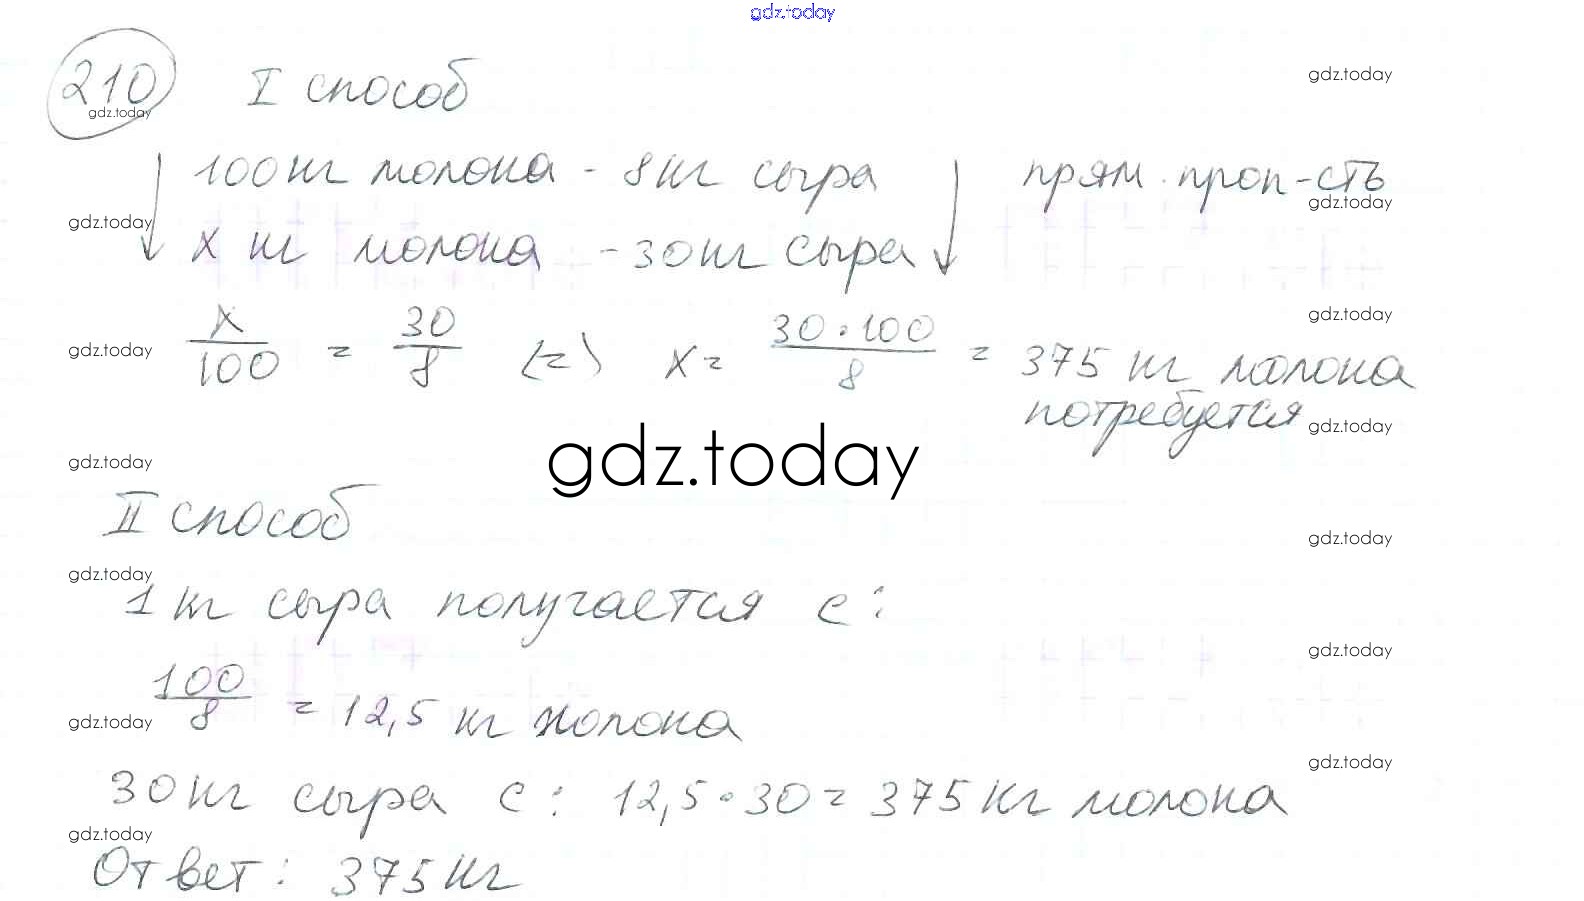 gdz.today
210 I способ
gdz.today
gdz.today
100 кг молока - 8 кг сыра прям. проп-сть
gdz.today
gdz.today
x кг молока - 30 кг сыра
gdz.today
x/100 = 30/8 (=) x = 30·100/8 = 375 кг молока
gdz.today
потребуется
gdz.today
gdz.today
gdz.today
II способ
gdz.today
gdz.today
1 кг сыра получается с:
gdz.today
100/8 = 12,5 кг молока
gdz.today
gdz.today
30 кг сыра с: 12,5·30 = 375 кг молока
gdz.today
Ответ: 375 кг